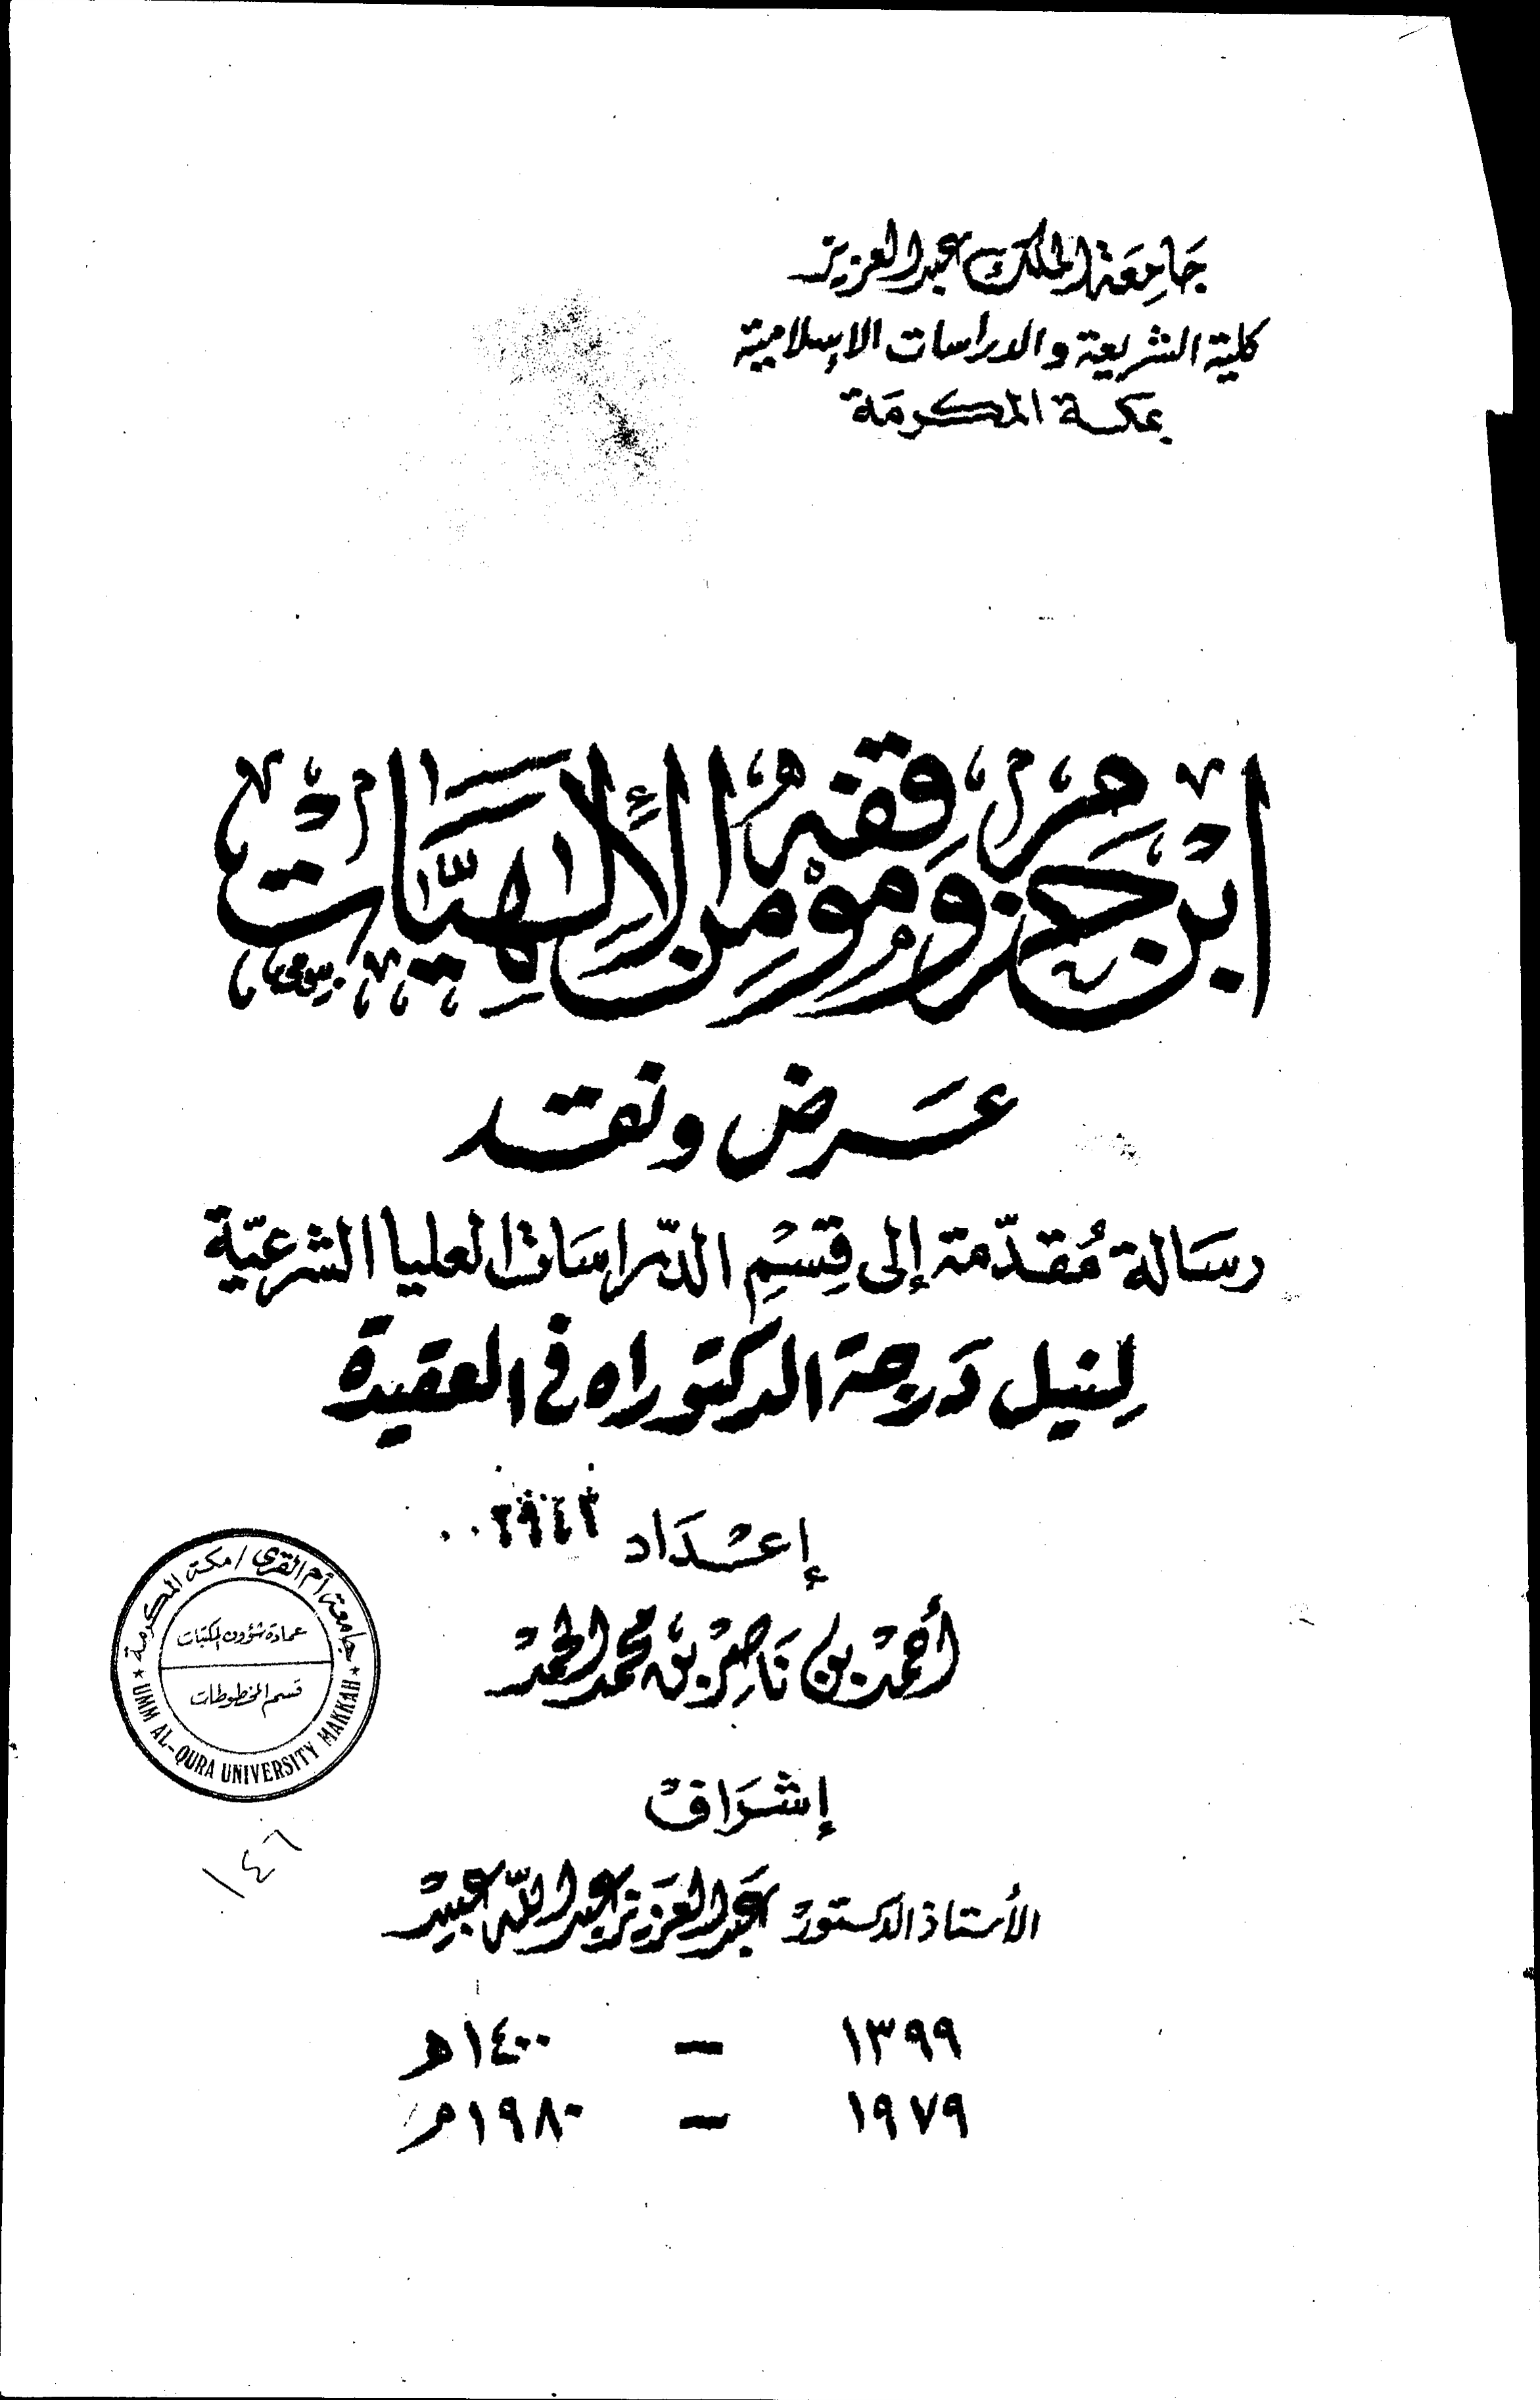 جامعة الملك عبد العزيز
كلية الشريعة والدراسات الإسلامية
بمكة المكرمة
ابن حزم وموقفه من الإلهيات
عرض ونقد
رسالة مقدمة إلى قسم الدراسات العليا الشرعية
لنيل درجة الدكتوراه في العقيدة
إعداد
٠٠٢٩٤٣
أحمد بن ناصر بن محمد الحمد
جامعة أم القرى / مكة المكرمة
عمادة شؤون المكتبات
قسم المخطوطات
★ UMM AL-QURA UNIVERSITY MAKKAH ★
١٤٦
إشراف
الأستاذ الدكتور عبد العزيز عبد الله عبيد
١٣٩٩ – ١٤٠٠ هـ
١٩٧٩ – ١٩٨٠ م